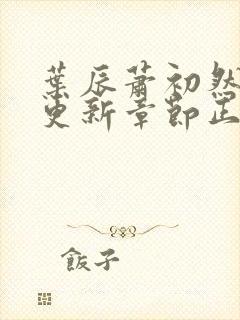 葉辰蕭初然
更新章節正
飯子